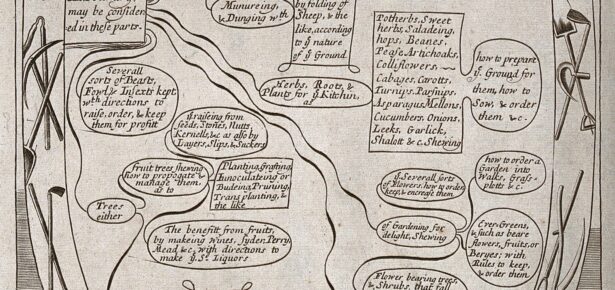 may be consider
ed in these parts.
Munureing, &
& Dunging wth
by folding of
Sheep, & the
like, according
to yͤ nature
of yͤ Ground
Severall
sorts of Beasts,
Fowl & Insexts kept
wth directions to
raise, order, & keep
them for profitt
Herbs, Roots, &
Plants for yͤ Kitchin,
as
Potherbs, Sweet
herbs, Saladeing,
hops, Beanes.
Pease Artichoaks,
Colliflowers
Cabages, Carotts,
Turnips. Parsnips.
Asparagus Mellons,
Cucumbers, Onions.
Leeks, Garlick,
Shalott & c. Shewing
how to prepare
yͤ Ground for
them, how to
Sow, & order
them & c.
yͤ raiseing from
seeds, Stones, Nutts,
Kernells, & c as also by
Layers, Slips, & Suckers
fruit trees shewing
how to propogate &
manage them.
as to
Planting, Grafting,
Innoculateing or
Budeing, Pruning,
Transplanting, &
the like
Trees
either
The benefitt from yͤ fruits,
by makeing Wines, Syder, Perry,
Mead & c, with directions to
make yͤ Sd. Liquors
yͤ Severall sorts
of Flowers, how to order,
keep, & encrease them
how to order a
Garden into
Walks, Gras-
plotts & c.
of Gardening for
delight, Shewing
Ever Greens,
& such as beare
flowers, fruits, or
Beryes; with
Rules to keep,
& order them.
Flower bearing trees,
& Shrubs, that fall